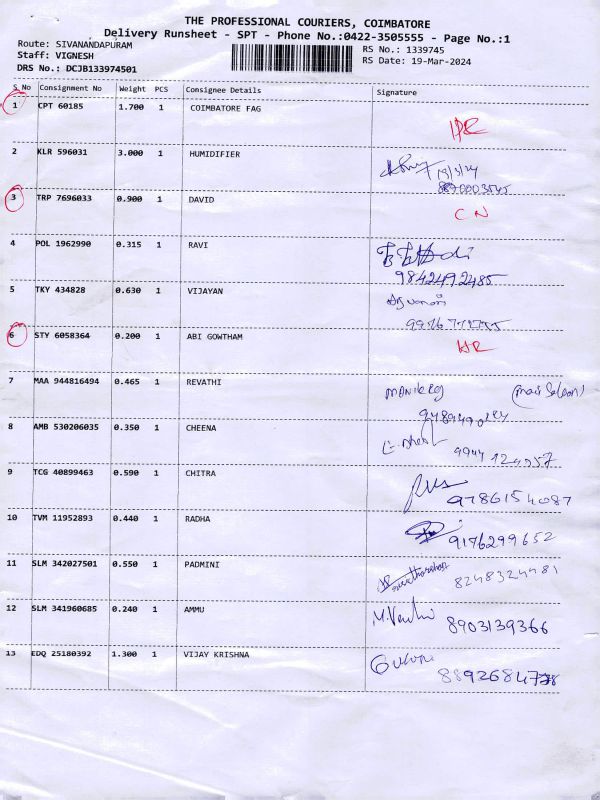 THE PROFESSIONAL COURIERS, COIMBATORE
Delivery Runsheet - SPT - Phone No.:0422-3505555 - Page No.:1
Route: SIVANANDAPURAM
Staff: VIGNESH
DRS No.: DCJB133974501
RS No.: 1339745
RS Date: 19-Mar-2024
S No Consignment No Weight PCS Consignee Details Signature
1 CPT 60185 1.700 1 COIMBATORE FAG
2 KLR 596031 3.000 1 HUMIDIFIER
19/3/24
3 TRP 7696033 0.900 1 DAVID
CN
4 POL 1962990 0.315 1 RAVI
9842492485
5 TKY 434828 0.630 1 VIJAYAN
6 STY 6058364 0.200 1 ABI GOWTHAM
HR
7 MAA 944816494 0.465 1 REVATHI
8 AMB 530206035 0.350 1 CHEENA
9944124957
9 TCG 40899463 0.590 1 CHITRA
9786154087
10 TVM 11952893 0.440 1 RADHA
9176299652
11 SLM 342027501 0.550 1 PADMINI
8248324481
12 SLM 341960685 0.240 1 AMMU
8903139366
13 EDQ 25180392 1.300 1 VIJAY KRISHNA